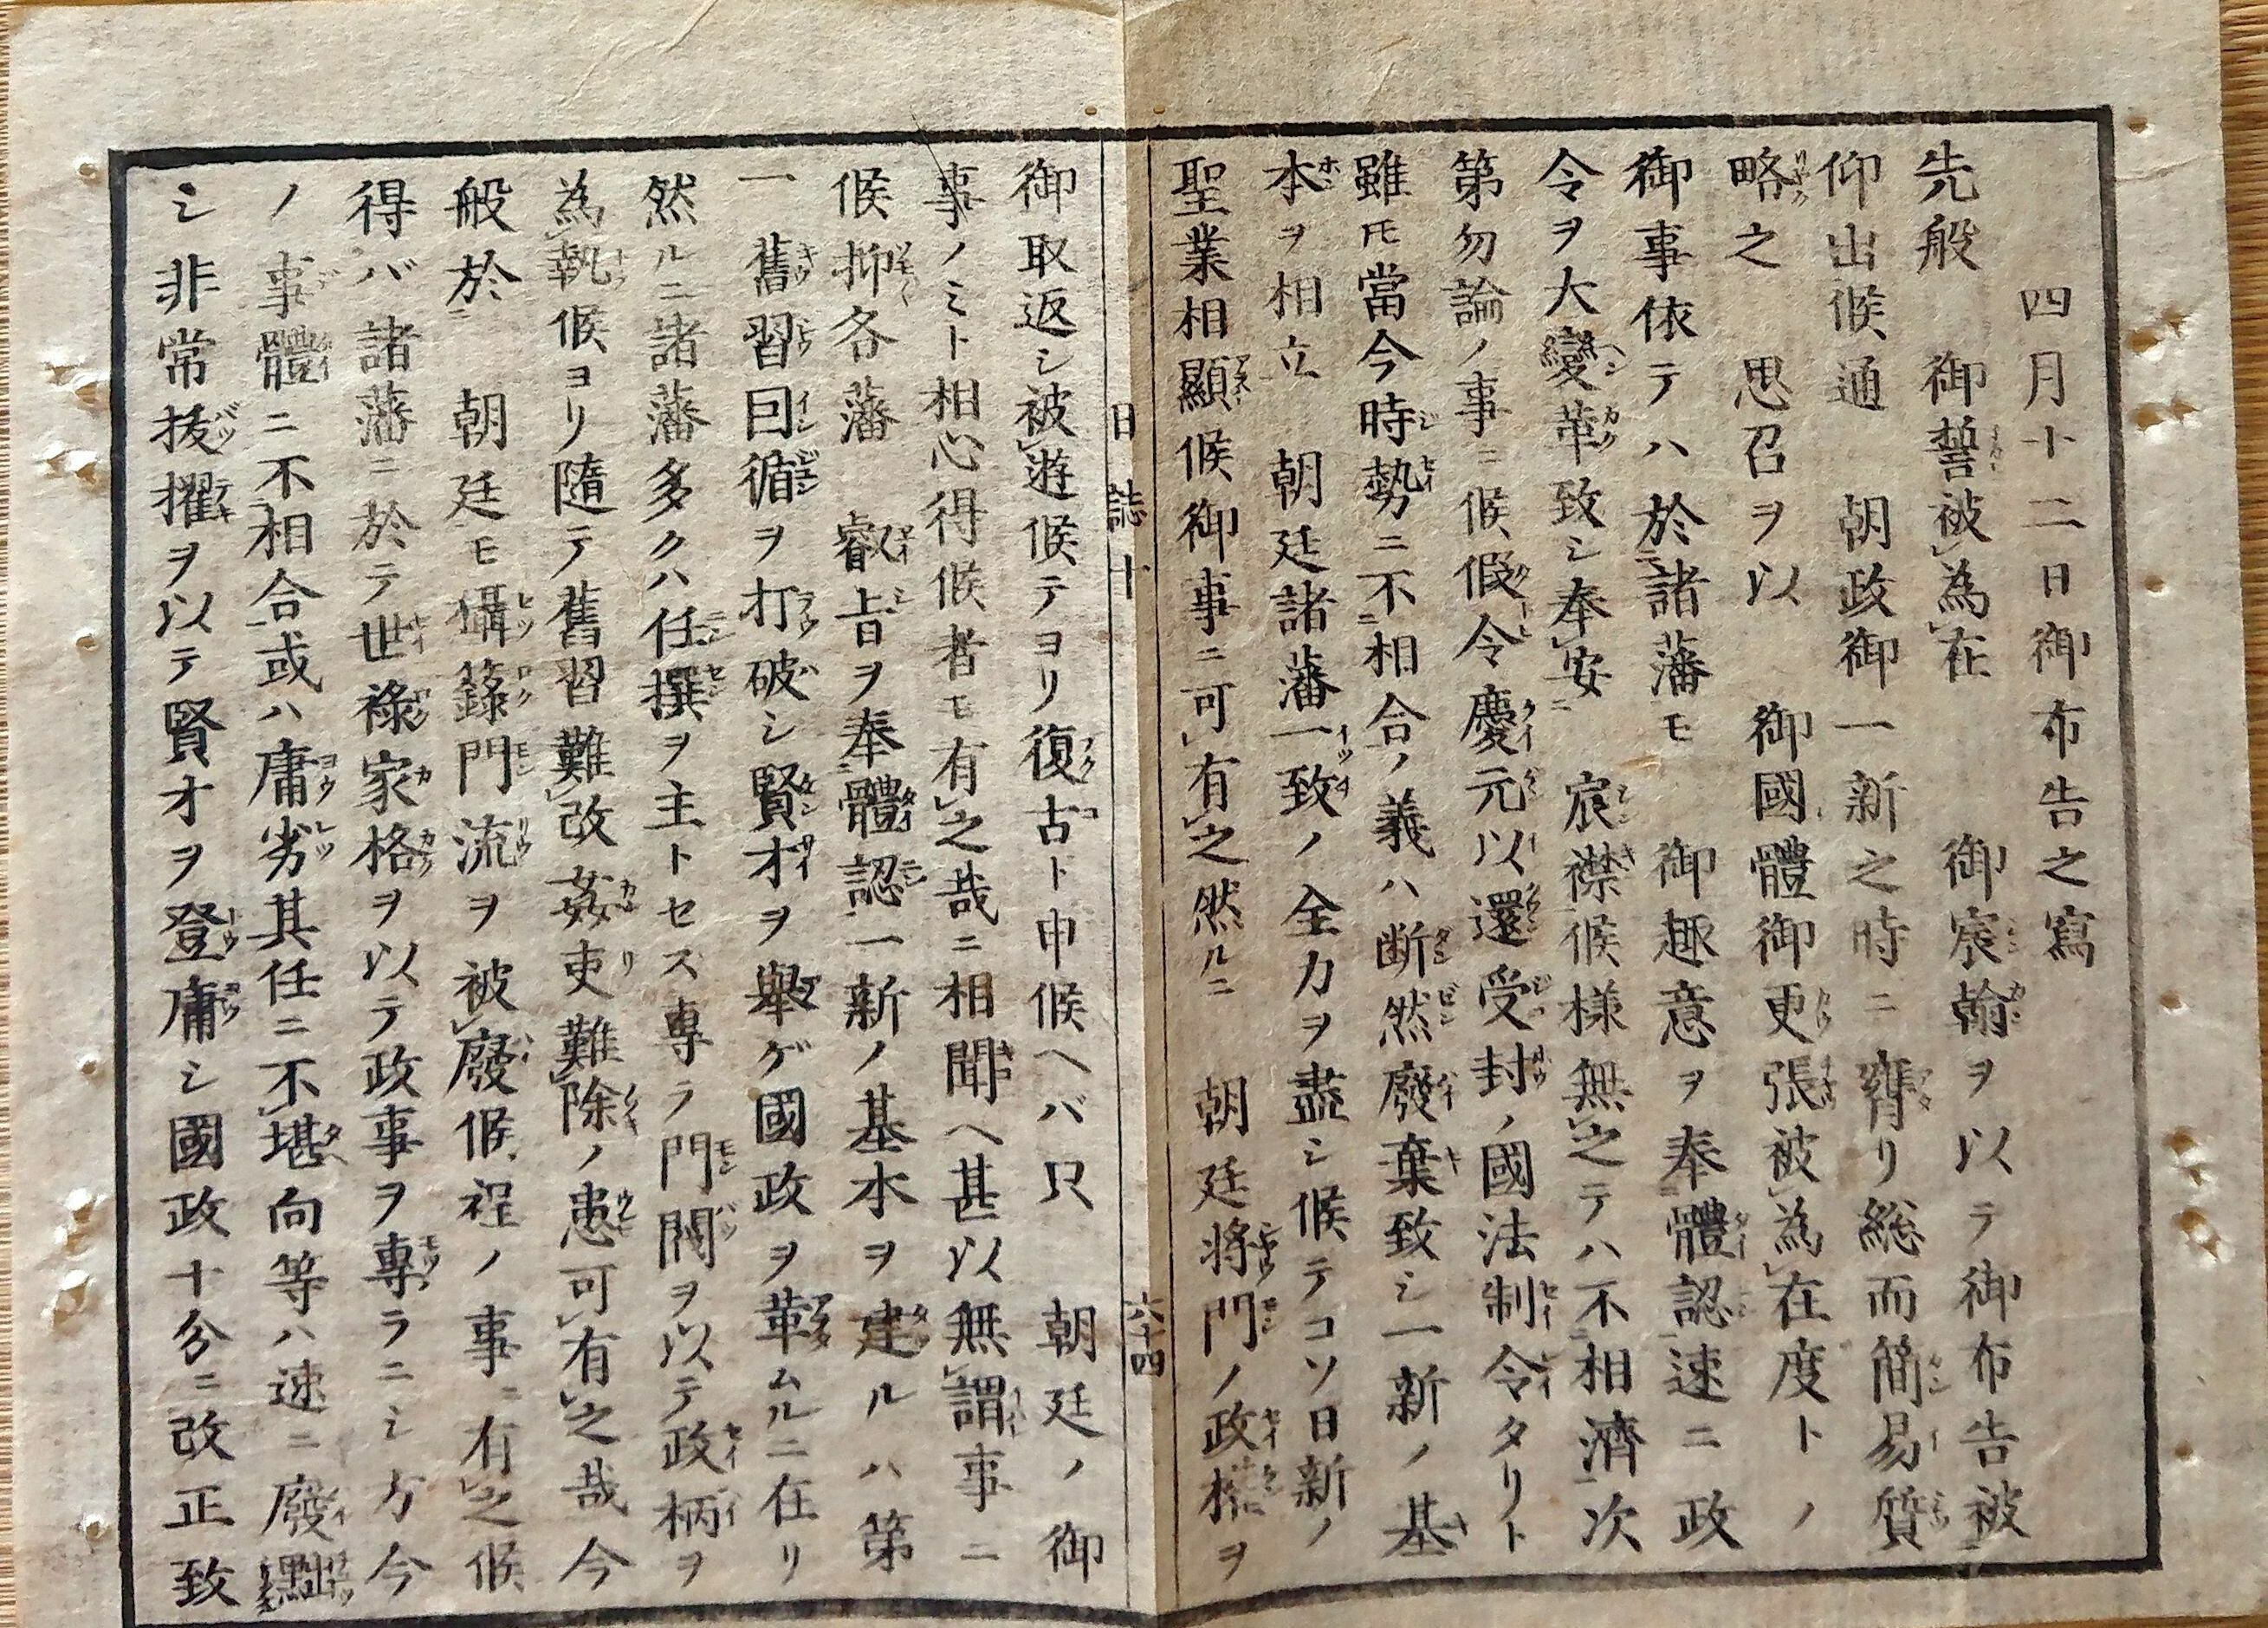 四月十二日御布告之寫
先般　御誓被為在　御宸翰ヲ以テ御布告被
仰出候通　朝政御一新之時ニ膺リ総而簡易質
略之　思召ヲ以　御國體御更張被為在度トノ
御事依テハ於諸藩モ　御趣意ヲ奉體認速ニ政
令ヲ大變革致シ奉安　宸襟候様無之テハ不相濟次
第勿論ノ事ニ候假令慶元以還受封ノ國法制令タリト
雖モ當今時勢ニ不相合ノ義ハ断然廢棄致シ一新ノ基
本ヲ相立　朝廷諸藩一致ノ全力ヲ盡シ候テコソ日新ノ
聖業相顯候御事ニ可有之然ルニ　朝廷将門ノ政権ヲ
日誌十　六十四
御取返シ被遊候テヨリ復古ト申候ヘバ只　朝廷ノ御
事ノミト相心得候者モ有之哉ニ相聞ヘ甚以無謂事ニ
候抑各藩　叡旨ヲ奉體認一新ノ基本ヲ建ルハ第
一　舊習因循ヲ打破シ賢才ヲ舉ゲ國政ヲ革ムルニ在リ
然ルニ諸藩多クハ任撰ヲ主トセズ專ラ門閥ヲ以テ政柄ヲ
為執候ヨリ隨テ舊習難改姦吏難除ノ患可有之哉今
般於　朝廷モ攝籙門流ヲ被廢候程ノ事ニ有之候
得バ諸藩ニ於テ世祿家格ヲ以テ政事ヲ專ラニシ方今
ノ事體ニ不相合或ハ庸劣其任ニ不堪向等ハ速ニ廢黜
シ非常抜擢ヲ以テ賢才ヲ登庸シ國政十分ニ改正致